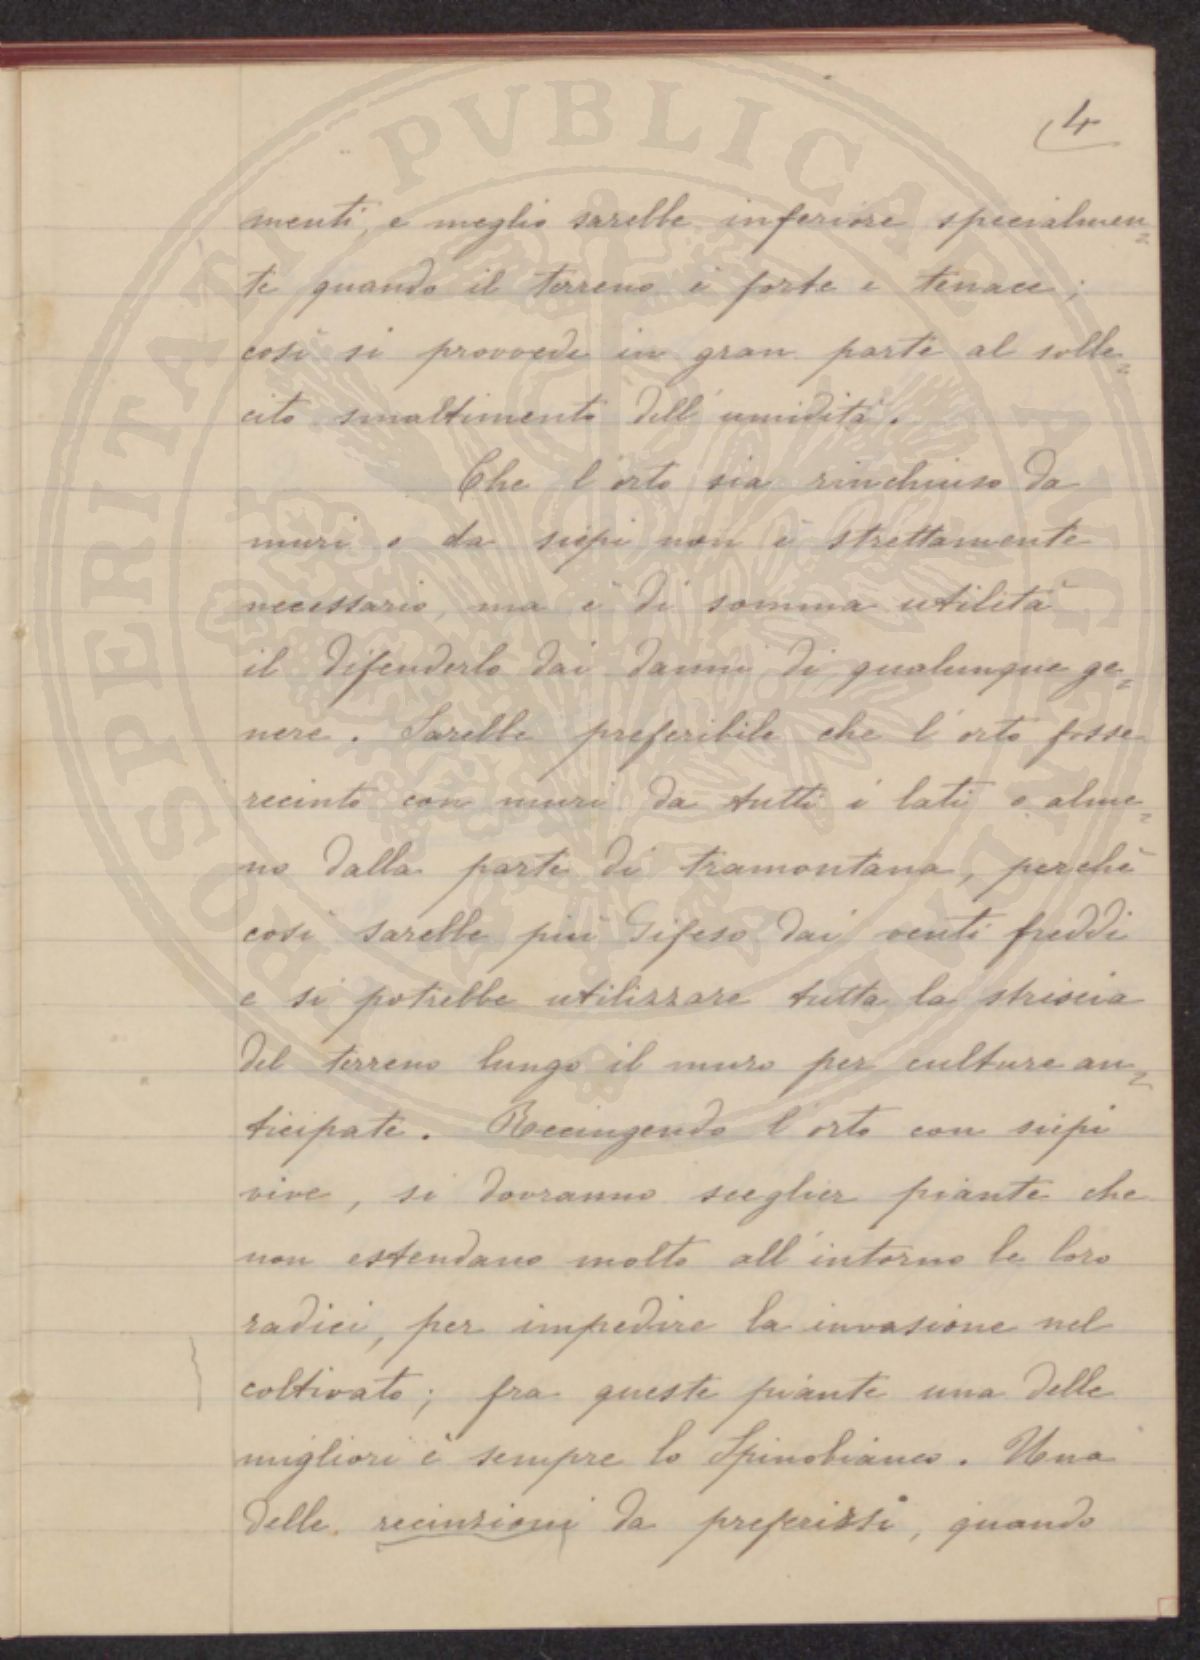 4
menti, e meglio sarebbe inferiore specialmen=
te quando il terreno è forte e tenace;
così si provvede in gran parte al solle=
cito smaltimento dell'umidità.
Che l'orto sia rinchiuso da
muri o da siepi non è strettamente
necessario, ma è di somma utilità
il difenderlo dai danni di qualunque ge=
nere. Sarebbe preferibile che l'orto fosse
recinto con muri da tutti i lati o alme=
no dalla parte di tramontana, perchè
così sarebbe più difeso dai venti freddi
e si potrebbe utilizzare tutta la striscia
del terreno lungo il muro per culture an=
ticipate. Recingendo l'orto con siepi
vive, si dovranno sceglier piante che
non estendano molto all'intorno le loro
radici, per impedire la invasione nel
coltivato; fra queste piante una delle
migliori è sempre lo Spinobianco. Una
delle recinzioni da preferirsi, quando
PROSPERITATI PVBLICAE AVGENDAE